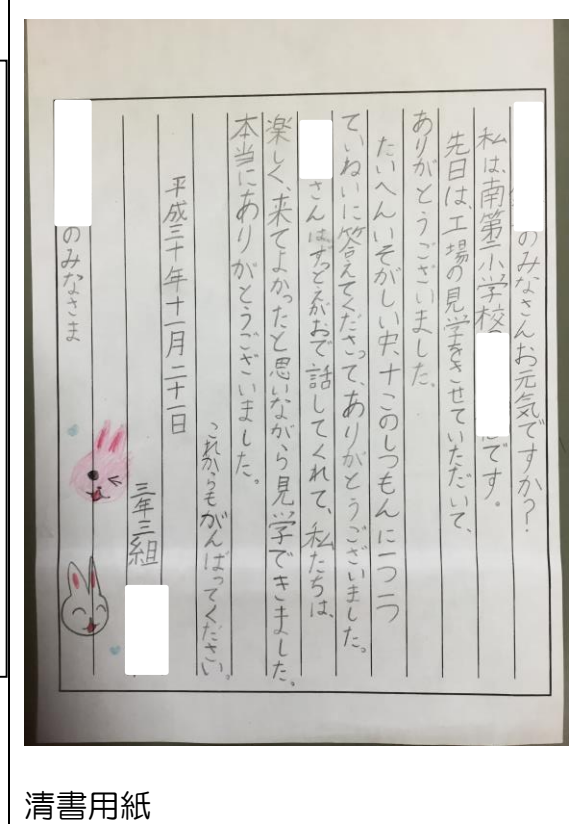 のみなさんお元気ですか?
私は、南第二小学校
です。
先日は、工場の見学をさせていただいて、
ありがとうございました。
たいへんいそがしい中、十このしつもんに一つ一つ
ていねいに答えてくださって、ありがとうございました。
さんはずっとえがおで話してくれて、私たちは、
楽しく、来てよかったと思いながら見学できました。
本当にありがとうございました。
これからもがんばってください。
平成三十年十一月二十一日
三年三組
のみなさま
清書用紙